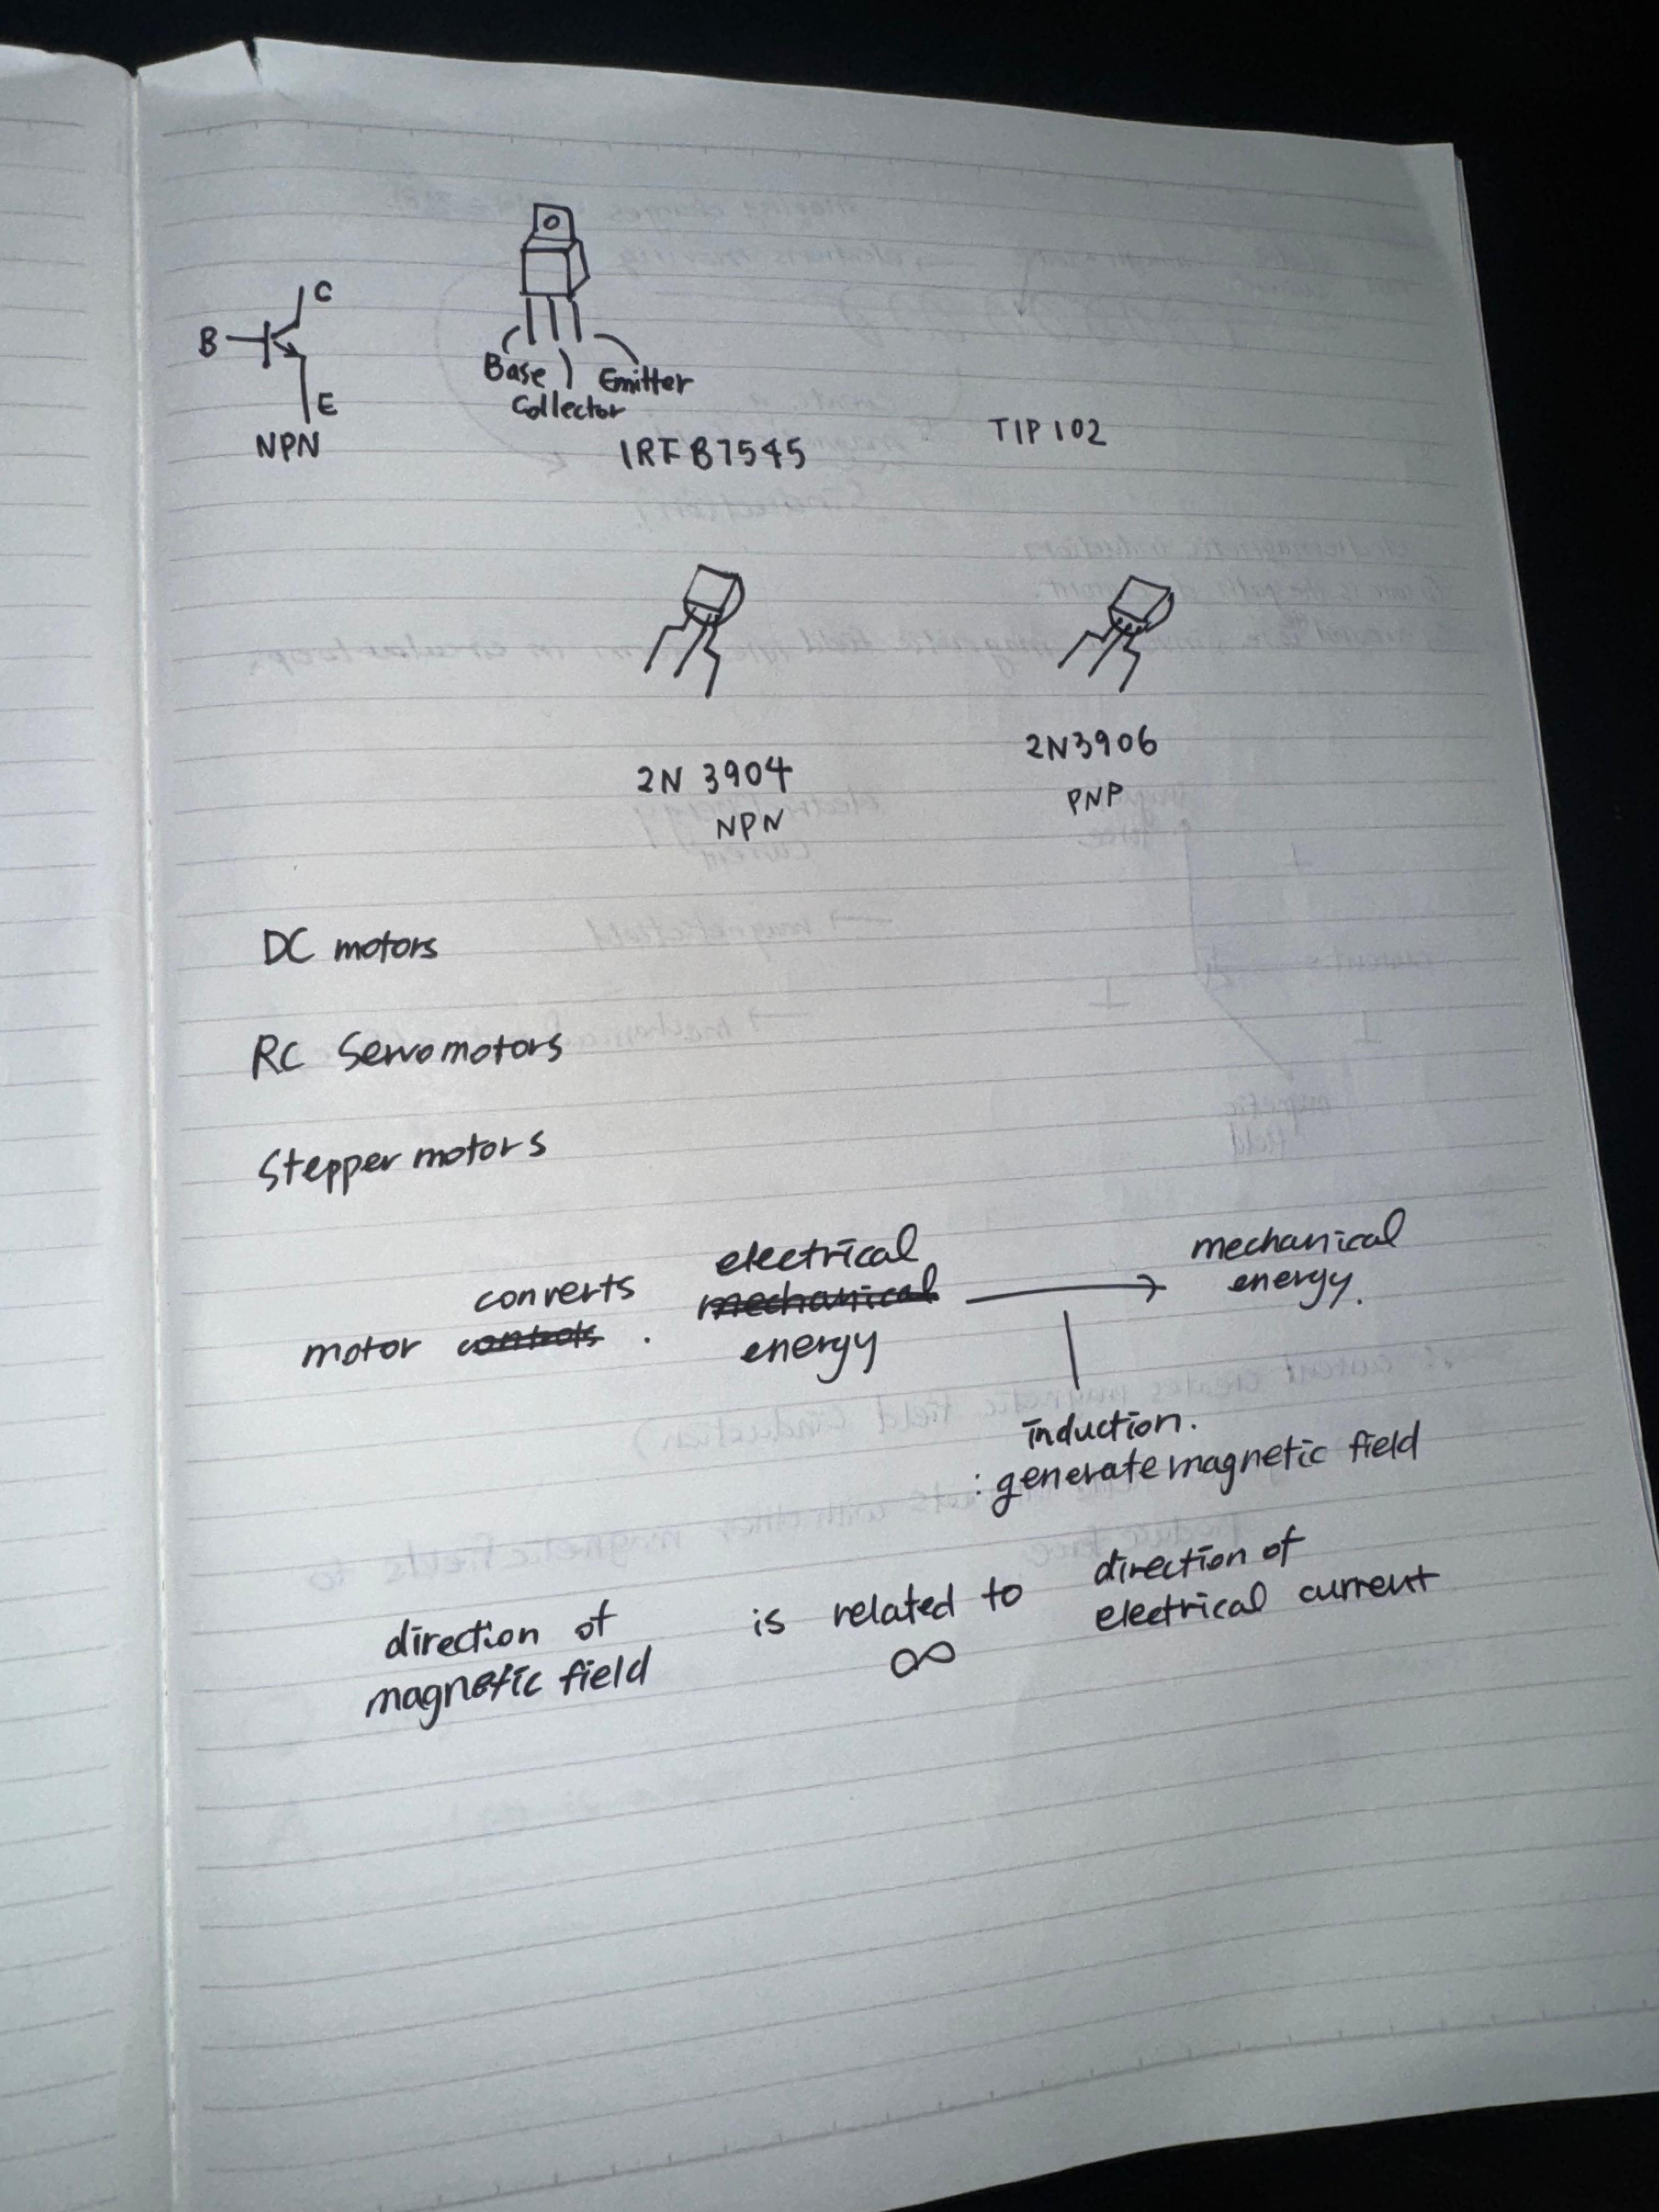 C
B
E
NPN
Base
Emitter
Collector
IRFB7545
TIP102
2N 3904
NPN
2N3906
PNP
DC motors
RC Servomotors
Stepper motors
motor controls converts . mechanical electrical energy → mechanical energy.
induction.
: generate magnetic field
direction of magnetic field is related to direction of electrical current
∞